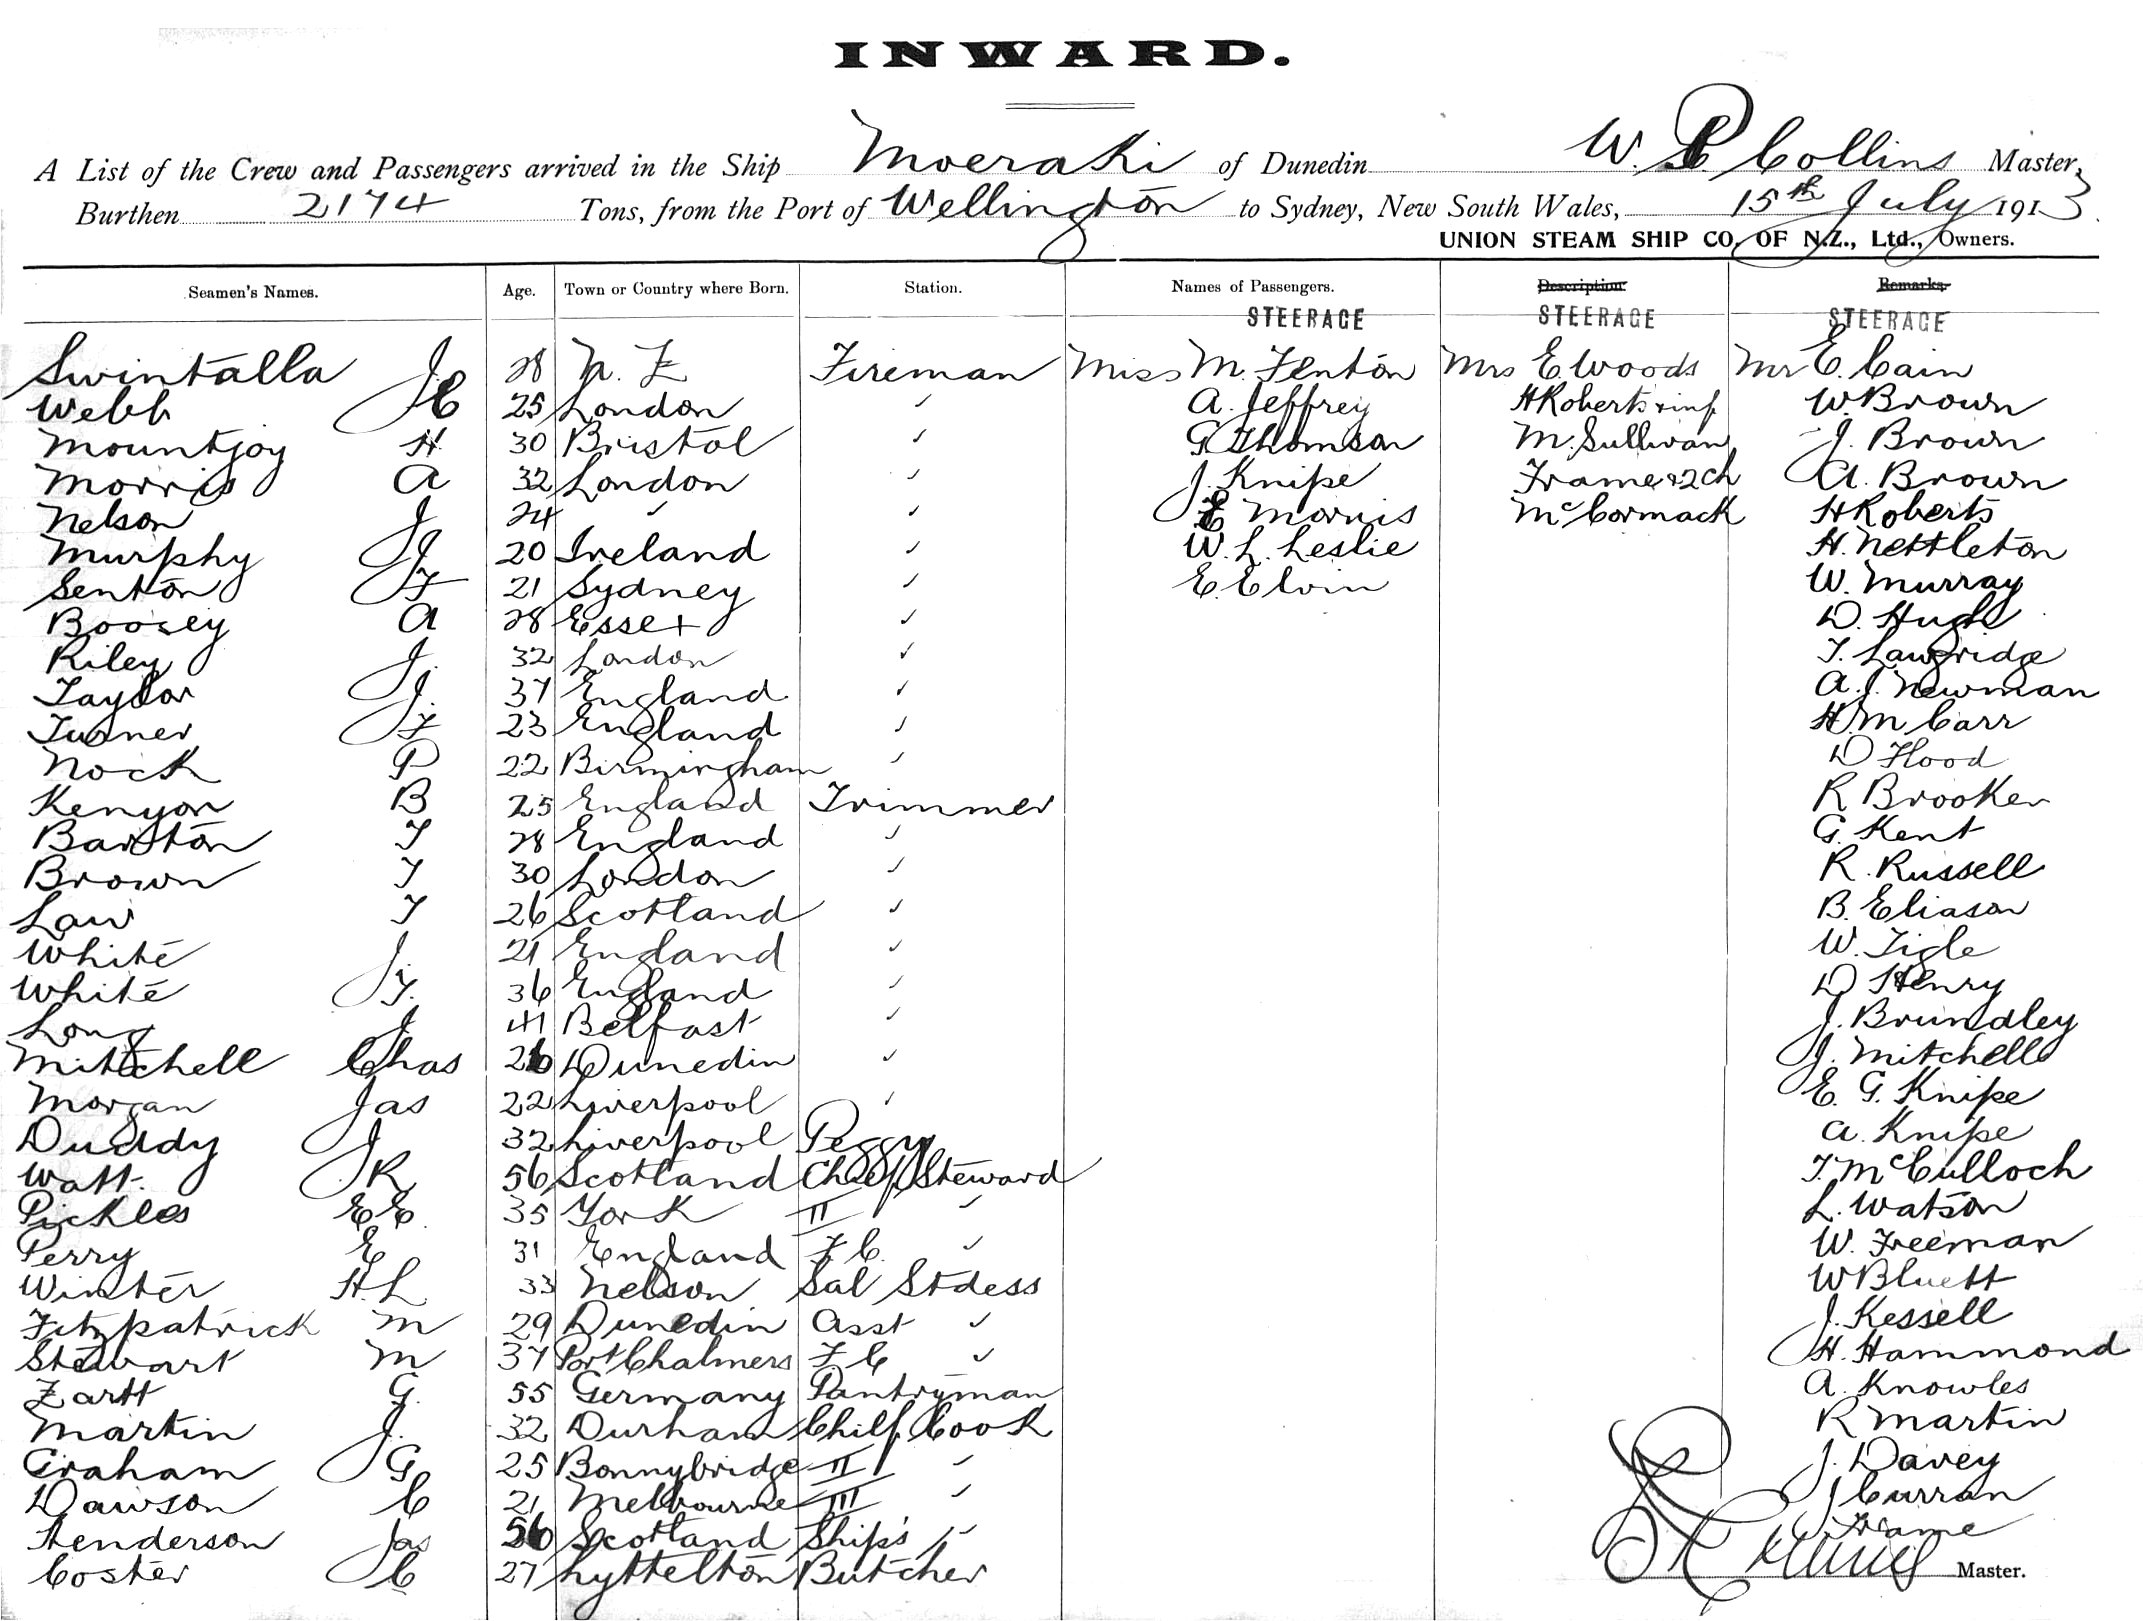 INWARD.
A List of the Crew and Passengers arrived in the Ship Moeraki of Dunedin W. P. Collins Master,
Burthen 2174 Tons, from the Port of Wellington to Sydney, New South Wales, 15th July 1913.
UNION STEAM SHIP CO. OF N.Z., Ltd., Owners.
Seamen's Names. Age. Town or Country where Born. Station. Names of Passengers. Description Remarks.
STEERAGE STEERAGE STEERAGE
Swintalla J. 28 N. Z Fireman Miss M. Fenton Mrs E. Woods Mr E. Cain
Webb J C 25 London ✓ A. Jeffrey H Roberts & inf W Brown
Mountjoy H 30 Bristol ✓ G Thomson M. Sullivan J. Brown
Morris A 32 London ✓ J. Knipe Frame & 2 ch A. Brown
Nelson J 24 ✓ ✓ E Morris McCormack H Roberts
Murphy J 20 Ireland ✓ W. L. Leslie H. Nettleton
Senton J F 21 Sydney ✓ E. Elvin W. Murray
Boosey A 28 Essex ✓ D. Hugh
Riley J. 32 London ✓ T. Lawridge
Taylor J. 37 England ✓ A. J. Newman
Turner J F 23 England ✓ H M Carr
Nock P 22 Birmingham ✓ D Flood
Kenyon B 25 England Trimmer R Brooker
Barston T 28 England ✓ G. Kent
Brown T 30 London ✓ R. Russell
Law T 26 Scotland ✓ B. Eliason
White J 21 England ✓ W. Tigle
White J. T. 36 England ✓ D Henry
Long J. 41 Belfast ✓ J. Brundley
Mitchell Chas 26 Dunedin ✓ J. Mitchell
Morgan Jas 22 Liverpool ✓ E. G. Knipe
Duddy J 32 Liverpool Peggy A. Knipe
Watt. J R 56 Scotland Chief Steward T. McCulloch
Pickles E E. 35 York II ✓ L. Watson
Perry E 31 England F. C. ✓ W. Freeman
Winter H. L 33 Nelson Sal Stdess W Bluett
Fitzpatrick M 29 Dunedin Asst ✓ J. Kessell
Stewart M 37 Port Chalmers F. C ✓ H. Hammond
Zartt G. 55 Germany Pantryman A. Knowles
Martin J. 32 Durham Chief Cook R Martin
Graham J G 25 Bonnybridge II ✓ J. Davey
Dawson C 21 Melbourne III ✓ J Curran
Henderson Jas 56 Scotland Ship's ✓ Frame
Coster C 27 Lyttelton Butcher
Master.